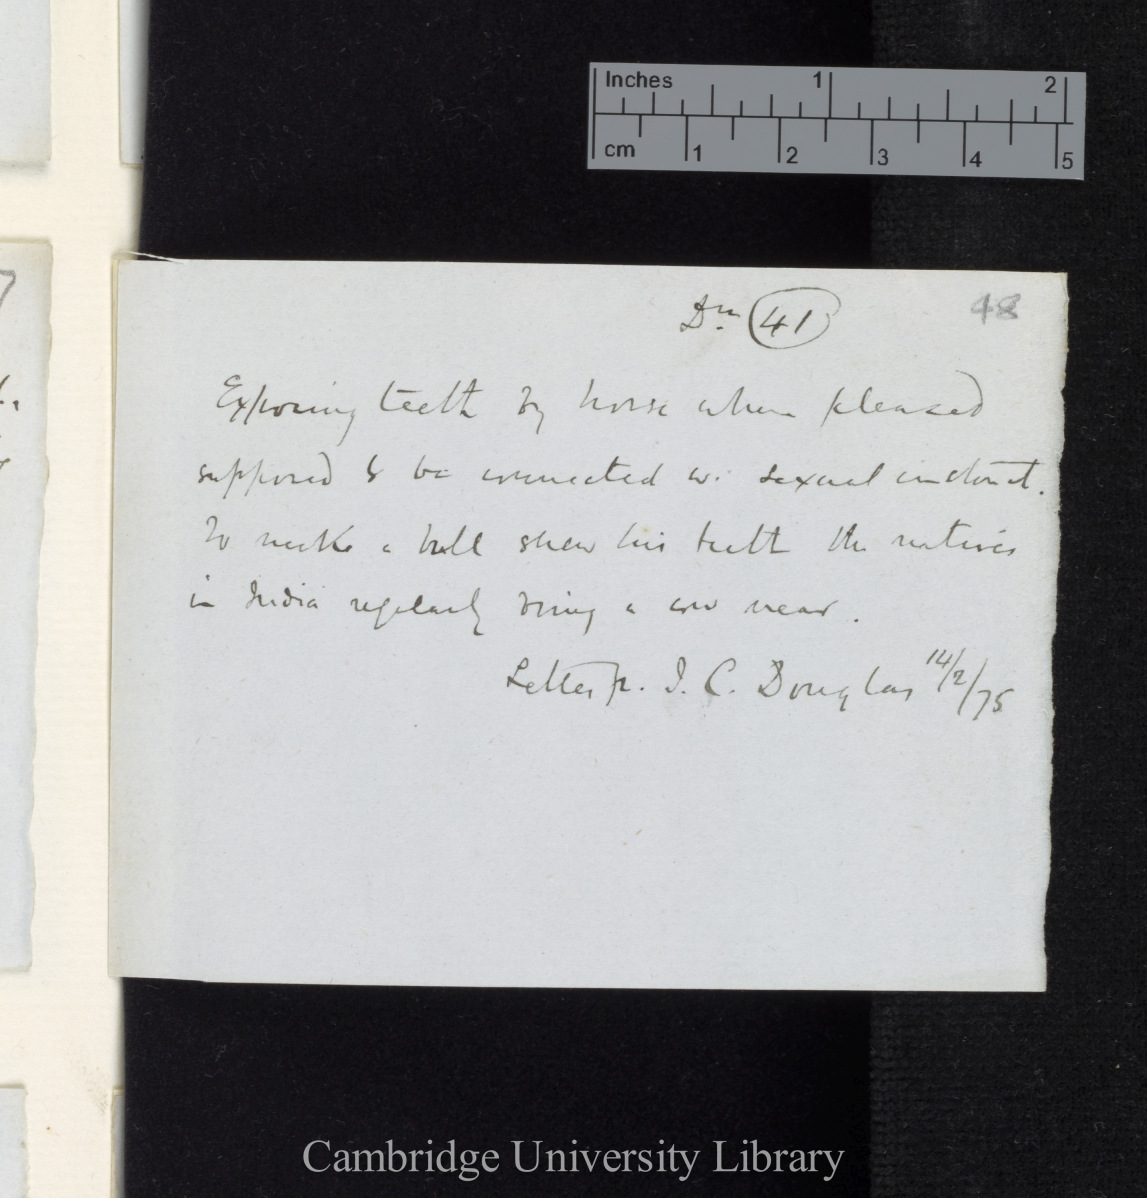 Inches 1 2
cm 1 2 3 4 5
7
Dn 41
48
Exposing teeth by horse when pleased
supposed to be connected w. sexual instinct.
To make a bull shew his teeth the natives
in India regularly bring a cow near.
Letter fr. J. C. Douglas 14/2/75
Cambridge University Library